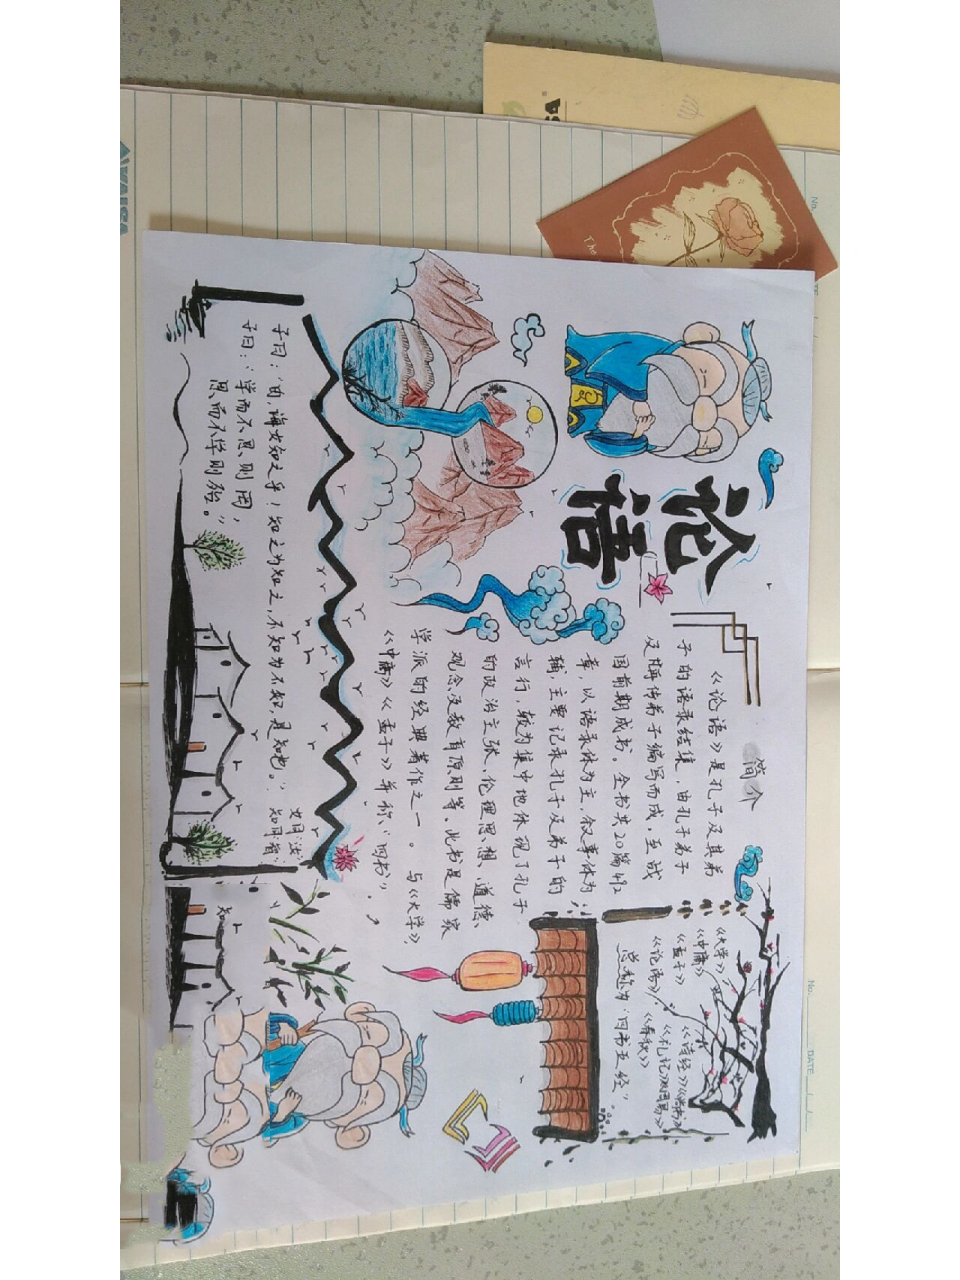 论语
简介
《论语》是孔子及其弟
子的语录结集，由孔子弟子
及再传弟子编写而成，至战
国前期成书。全书共20篇
章，以语录体为主，叙事体为
辅，主要记录孔子及弟子的
言行，较为集中地体现了孔子
的政治主张、伦理思想、道德
观念及教育原则等。此书是儒家
学派的经典著作之一。与《大学》，
《中庸》《孟子》并称"四书"
《大学》
《中庸》
《孟子》
《论语》
《诗经》
《礼记》
《春秋》
总称为"四书五经"
子曰："由，诲女知之乎！知之为知之，不知为不知，是知也。"
子曰："学而不思则罔，
思而不学则殆。"
The
No.
No.
DATE